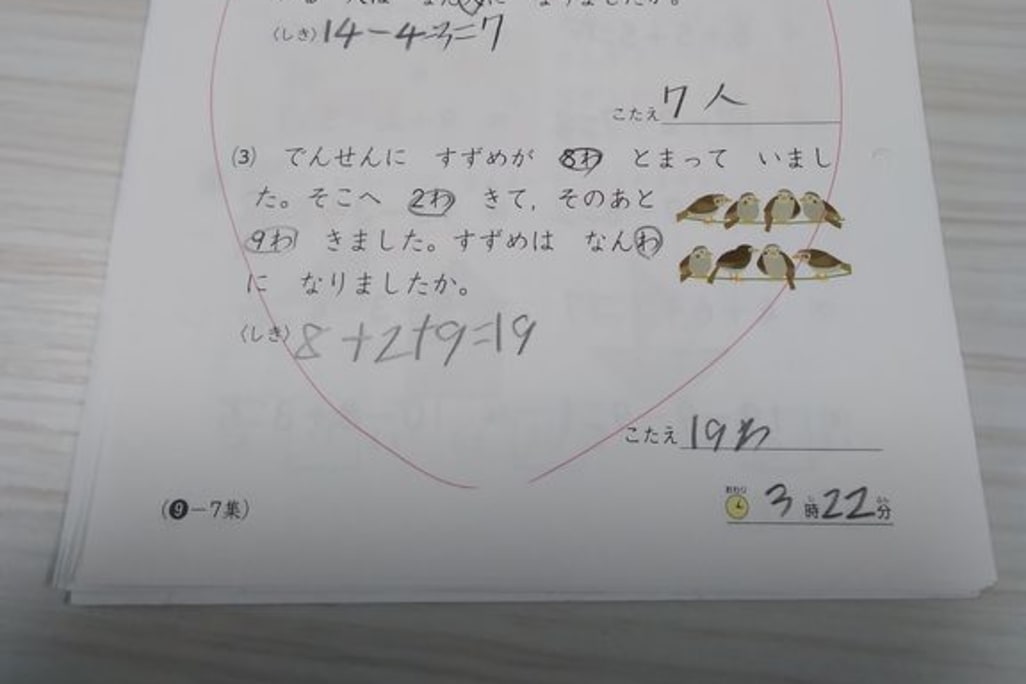 なりましたか。
(しき)14-4-3=7
こたえ 7人
(3) でんせんに すずめが 8わ とまって いまし
た。そこへ 2わ きて、そのあと
9わ きました。すずめは なんわ
に なりましたか。
(しき)8+2+9=19
こたえ 19わ
(❾-7集)
おわり 3時22分